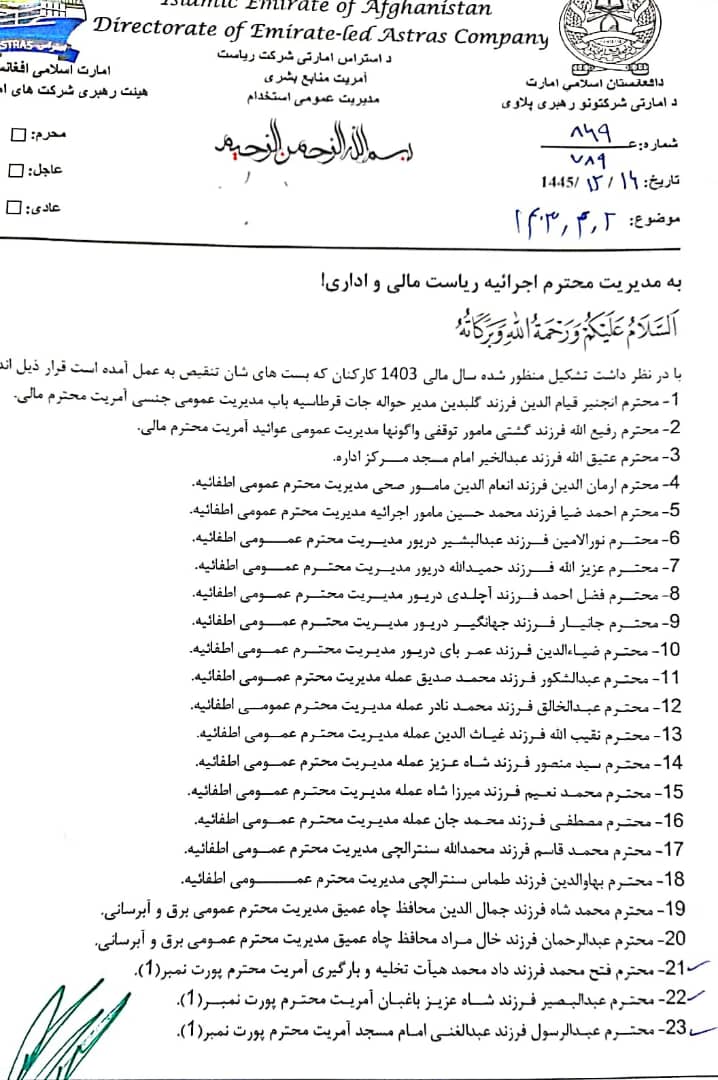 Islamic Emirate of Afghanistan
Directorate of Emirate-led Astras Company
ASTRAS
امارت اسلامی
هیئت رهبری شرکت های
د استراس امارتی شرکت ریاست
آمریت منابع بشری
مدیریت عمومی استخدام
دافغانستان اسلامی امارت
د امارتی شرکتونو رهبری پلاوی
بسم الله الرحمن الرحیم
محرم: □
عاجل: □
عادی: □
شماره: ۸۴۹
۷۸۹
تاریخ: ۱۶ / ۱۲ /1445
موضوع: ۱۴۰۳٫۴٫۲
به مدیریت محترم اجرائیه ریاست مالی و اداری!
اَلسَّلَامُ عَلَيْكُمْ وَرَحْمَةُ اللهِ وَبَرَكَاتُهُ
با در نظر داشت تشکیل منظور شده سال مالی 1403 کارکنان که بست های شان تنقیص به عمل آمده است قرار ذیل اند
1- محترم انجنیر قیام الدین فرزند گلبدین مدیر حواله جات قرطاسیه باب مدیریت عمومی جنسی آمریت محترم مالی.
2- محترم رفیع الله فرزند گشتی مامور توقفی واگونها مدیریت عمومی عوائید آمریت محترم مالی.
3- محترم عتیق الله فرزند عبدالخیر امام مسجد مرکز اداره.
4- محترم ارمان الدین فرزند انعام الدین مامور صحی مدیریت محترم عمومی اطفائیه.
5- محترم احمد ضیا فرزند محمد حسین مامور اجرائیه مدیریت محترم عمومی اطفائیه.
6- محترم نورالامین فرزند عبدالبشیر دریور مدیریت محترم عمومی اطفائیه.
7- محترم عزیز الله فرزند حمیدالله دریور مدیریت محترم عمومی اطفائیه.
8- محترم فضل احمد فرزند آچلدی دریور مدیریت محترم عمومی اطفائیه.
9- محترم جانیار فرزند جهانگیر دریور مدیریت محترم عمومی اطفائیه.
10- محترم ضیاءالدین فرزند عمر بای دریور مدیریت محترم عمومی اطفائیه.
11- محترم عبدالشکور فرزند محمد صدیق عمله مدیریت محترم عمومی اطفائیه.
12- محترم عبدالخالق فرزند محمد نادر عمله مدیریت محترم عمومی اطفائیه.
13- محترم نقیب الله فرزند غیاث الدین عمله مدیریت محترم عمومی اطفائیه.
14- محترم سید منصور فرزند شاه عزیز عمله مدیریت محترم عمومی اطفائیه.
15- محترم محمد نعیم فرزند میرزا شاه عمله مدیریت محترم عمومی اطفائیه.
16- محترم مصطفی فرزند محمد جان عمله مدیریت محترم عمومی اطفائیه.
17- محترم محمد قاسم فرزند محمدالله سنترالچی مدیریت محترم عمومی اطفائیه.
18- محترم بهاوالدین فرزند طماس سنترالچی مدیریت محترم عمومی اطفائیه.
19- محترم محمد شاه فرزند جمال الدین محافظ چاه عمیق مدیریت محترم عمومی برق و آبرسانی.
20- محترم عبدالرحمان فرزند خال مراد محافظ چاه عمیق مدیریت محترم عمومی برق و آبرسانی.
21- محترم فتح محمد فرزند داد محمد هیأت تخلیه و بارگیری آمریت محترم پورت نمبر(1).
22- محترم عبدالبصیر فرزند شاه عزیز باغبان آمریت محترم پورت نمبر(1).
23- محترم عبدالرسول فرزند عبدالغنی امام مسجد آمریت محترم پورت نمبر(1).